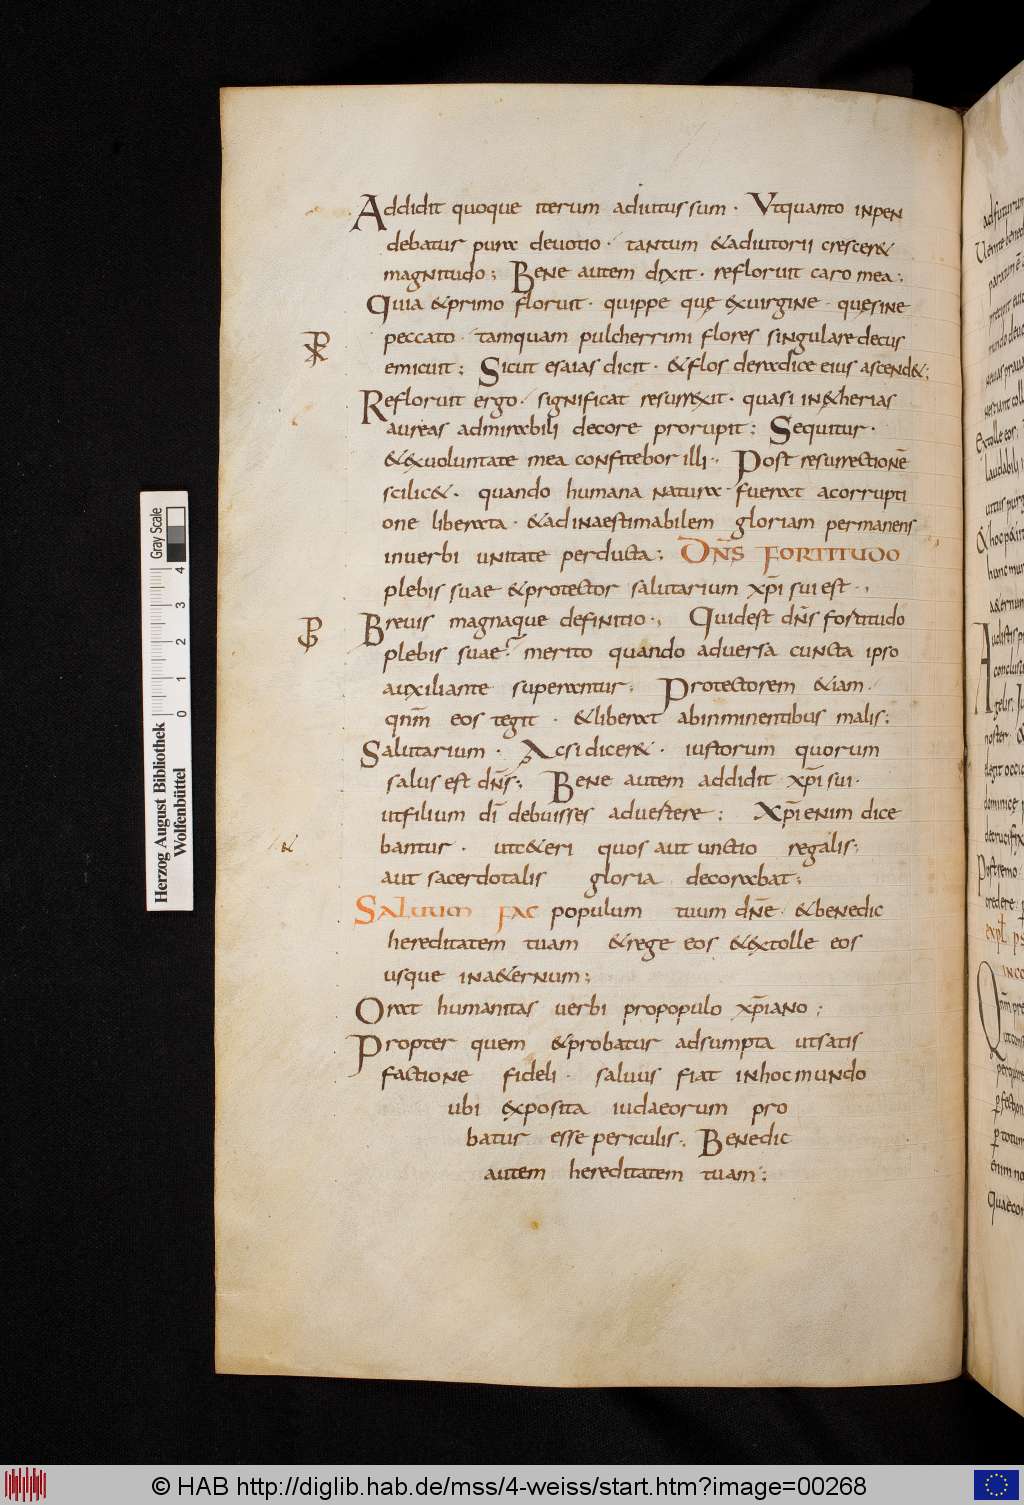 Addidit quoque iterum adiutus sum · Vtquanto inpen
debatur pura devotio · tantum &adiutorii crescer&
magnitudo; Bene autem dixit · refloruit caro mea;
Quia &primo floruit · quippe quę exuirgine · quęsine
peccato · tamquam pulcherrimi flores singulare decus
emicuit; Sicut esaias dicit · &flos deradice eius ascend&;
Refloruit ergo · significat resurrexit · quasi inetherias
aureas admirabili decore prorupit; Sequitur ·
&exuoluntate mea confitebor illi · Post resurrectionē
scilic& · quando humana natura fuerat acorrupti
one liberata · &adinaestimabilem gloriam permanens
inuerbi unitate perducta; DN̄S FORTITUDO
plebis suae &protector salutarium xp̄i sui est ·,
Breuis magnaque definitio ·, Quidest dn̄s fortitudo
plebis suae? merito quando aduersa cuncta ipso
auxiliante superantur; Protectorem &iam ·
qnm̄ eos tegit · &liberat abinminentibus malis;
Salutarium · Acsi dicer& · iustorum quorum
salus est dn̄s; Bene autem addidit xp̄i sui ·
utfilium dī debuisses aduertere; Xp̄i enim dice
bantur · uterque quos aut unctio regalis;
aut sacerdotalis gloria decorabat;
SALUUM FAC populum tuum dn̄e · &benedic
hereditatem tuam &rege eos &extolle eos
usque ina&ernum;
Orat humanitas uerbi propopulo xp̄iano;
Propter quem &probatur adsumpta utsatis
factione fideli · saluus fiat inhoc mundo
ubi exposita iudaeorum pro
batur esse periculis; Benedic
autem hereditatem tuam;
Herzog August Bibliothek
Wolfenbüttel
Gray Scale
0 1 2 3 4
© HAB http://diglib.hab.de/mss/4-weiss/start.htm?image=00268